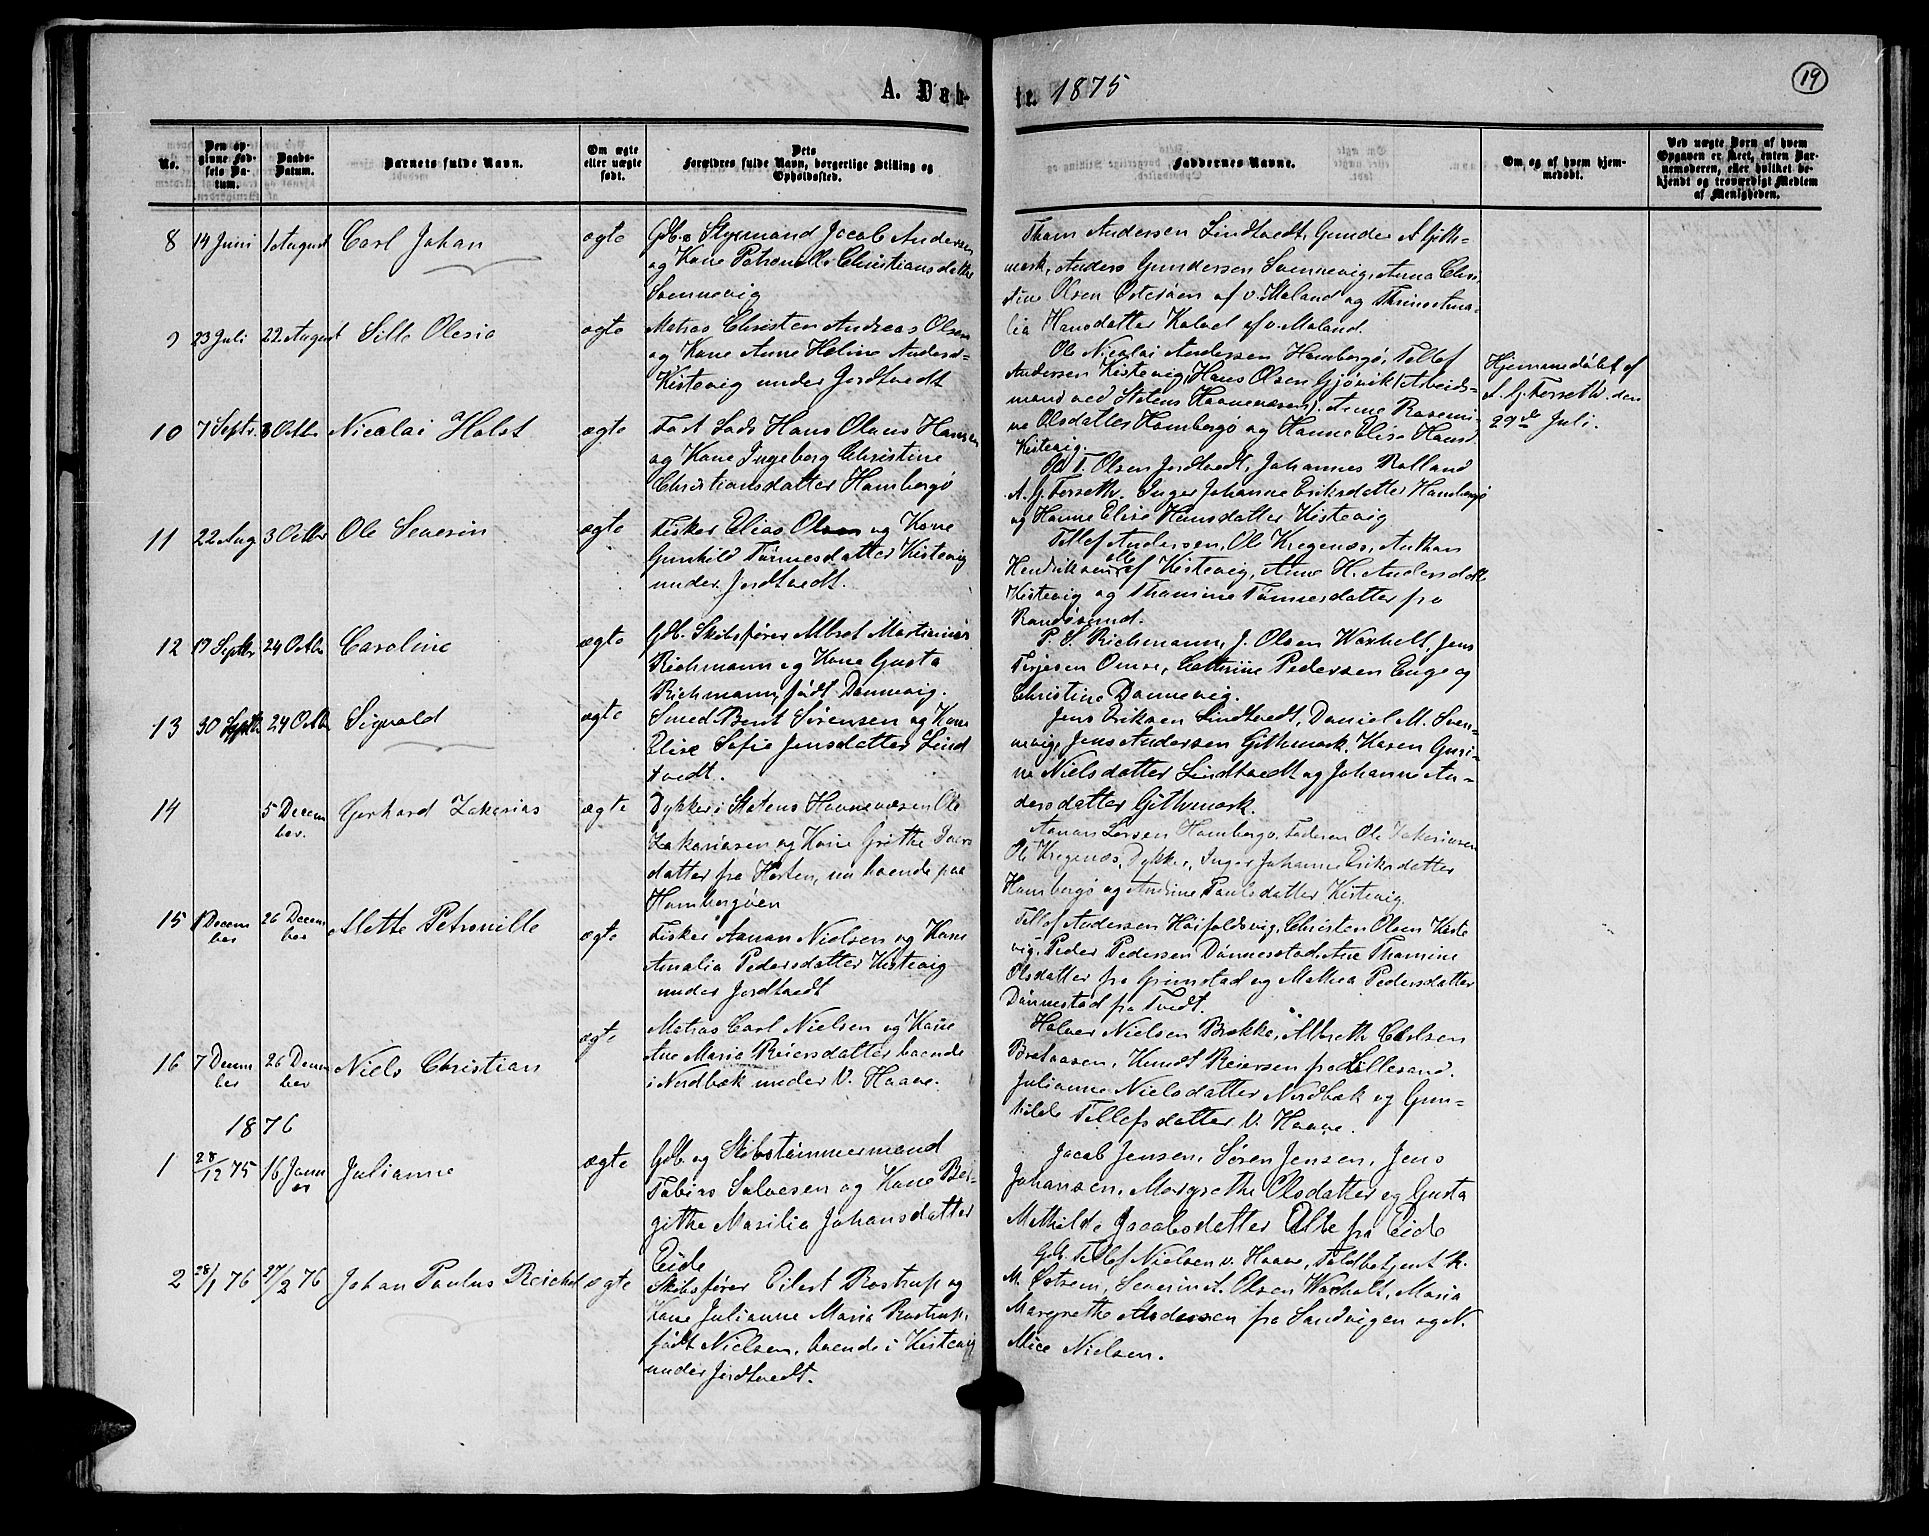 A. Døb-
te. 1875
19
No.
Den op-
givne Fød-
sels Da-
tum.
Daabs-
Datum.
Barnets fulde Navn.
Om ægte
eller uægte
født.
Dets
Forældres fulde Navn, borgerlige Stilling og
Opholdssted.
Faddernes Navne.
Om og af hvem hjem-
medøbt.
Ved uægte Børn af hvem
Opgaven er skeet, enten Bar-
nemoderen, eller hvilket be-
kjendt og troværdigt Medlem
af Menigheden.
8 14 Juni 1 August Carl Johan ægte
Gdb. Styrmand Jacob Andersen
og Kone Petronelle Christiansdatter
Svennevig
Andersen Lindtvedt, Gunder A Gith-
mark, Anders Gundersen Svennevig, Anna Chri-
stine Olsen Osterøen af v. Moland og Thrine Ama-
lia Hansdatter Kalvel af v. Moland.
9 23 Juli 22 August Sille Olesia ægte
Matros Christen Andreas Olsen
og Kone Anne Heline Andersd-
Kistevig under Jordtvedt
Ole Nicolai Andersen Homborgø, Tellef
Andersen Kistevig, Hans Olsen Gjøvik (Arbeids-
mand ved Statens Havnevæsen), Anne Rasmi-
ne Olsdatter Homborgø og Hanne Elise Hansd.
Kistevig.
Hjemmedøbt af
A. G. Forseth. den
29de Juli.
10 7 Septr. 3 Octbr Nicolai Holst ægte
Fast Lods Hans Olaus Hansen
og Kone Ingeborg Christine
Christiansdatter Homborgø
Ole T. Olsen Jordtvedt, Johannes Rolland
A. G. Forseth. Inger Johanne Eriksdatter Homborgø
og Hanne Elise Hansdatter Kistevig
11 22 Aug. 3 Octbr Ole Severin ægte
Fisker Elias Olsen og Kone
Gunhild Tønnesdatter Kistevig
under Jordtvedt.
Tellef Andersen, Ole Kregenæs, Anthon
Hendriksen alle af Kistevig, Anne H. Andersdatter
Kistevig og Thomine Tønnesdatter fra
Randøsund.
12 17 Septbr 24 Octbr Caroline ægte
Gdb. Skibsfører Albret Martinius
Richmann og Kone Gusta
Richmann, født Dannevig.
P. S. Richmann, J. Olsen Waxholt, Jens
Terjesen Omre, Cathrine Pedersen Enge og
Christine Dannevig.
13 30 Septbr 24 Octbr Sigvald ægte
Smed Bent Sørensen og Kone
Elise Sofie Jensdatter Lind
tvedt.
Jens Eriksen Lindtvedt, Daniel M. Sven-
nevig, Jens Andersen Githmark, Karen Guri-
ne Nielsdatter Lindtvedt og Johanne An-
dersdatter Githmark.
14 5 Decem
ber. Gerhard Zakarias ægte
Dykker i Statens Havnevæsen Ole
Zakariasen og Kone Grethe
datter fra Horten, nu boende paa
Homborgøen
Aanon Larsen Homborgø, Faderen Ole Zakariasen
Ole Kregenæs, Dykker, Inger Johanne Eriksdatter
Homborgø og Andrine Paulsdatter Kistevig.
15 1 Decem
ber 26 Decem
ber Alette Petronille ægte
Fisker Aanon Nielsen og Kone
Amalia Pedersdatter Kistevig
under Jordtvedt
Tellef Andersen Høifoldsvig, Christen Olsen Kiste
vig, Peder Pedersen Dønnestad, Ane Thomine
Olsdatter fra Grimstad og Mathea Pedersdatter
Dønnestad fra Tvedt.
16 7 Decem
ber 26 Decem
ber Niels Christian ægte
Matros Carl Nielsen og Kone
Ane Maria Reiersdatter boende
i Nordbæk under V. Haave.
Halvor Nielsen Brække, Albreth Carlsen
Knudt Reiersen fra Lillesand.
Julianne Nielsdatter Nordbæk og Gun-
hilde Tellefsdatter V. Haave.
1876
1 28/12 75 16 Janu
ar Julianne ægte
Gdb. og Skibstømmermand
Tobias Salvesen og Kone Ber-
githe Marilia Johansdatter
Eide
Jacob Jensen, Søren Jensen, Jens
Johansen, Margrethe Olsdatter og Gusta
Mathilde Jacobsdatter Alle fra Eide
2 28/1 76 27/2 76 Johan Paulus Reichel ægte
Skibsfører Eilert Rostrup og
Kone Julianne Maria Rostrup,
født Nielsen, boende i Kistevig
under Jordtvedt.
Gdb. Tellef Nielsen v. Haave, Toldbetjent R.
M. Severin A. Olsen Waxholt, Maria
Margrethe Andersen fra Sandvigen og N.
Alice Nielsen.